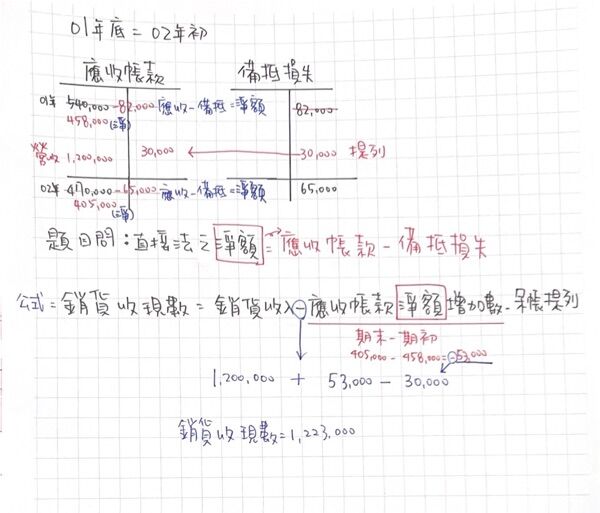 01年底 = 02年初
應收帳款 備抵損失
01年 540,000 -82,000 應收-備抵=淨額 82,000
458,000(淨)
營收 1,200,000 30,000 ← 30,000 提列
02年 470,000 -65,000 應收-備抵=淨額 65,000
405,000(淨)
題目問:直接法之淨額=應收帳款-備抵損失
公式=銷貨收現數=銷貨收入-應收帳款淨額增加數-呆帳提列
期末-期初
405,000 - 458,000=-53,000
1,200,000 + 53,000 - 30,000
銷貨收現數=1,223,000